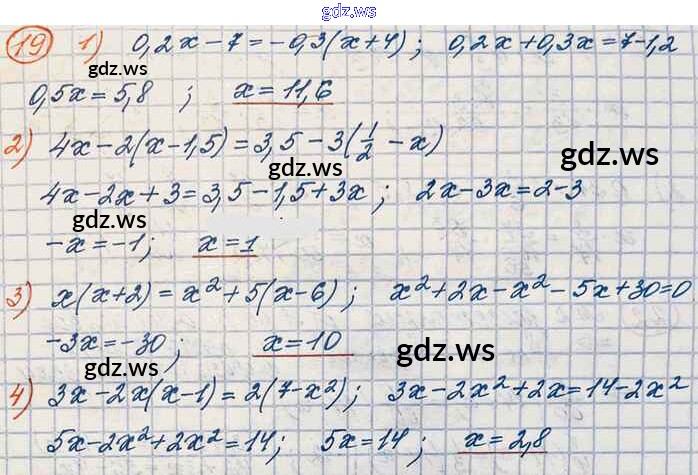 gdz.ws
19 1) 0,2x-7=-0,3(x+4); 0,2x+0,3x=7-1,2
gdz.ws
0,5x=5,8 ; x=11,6
gdz.ws
2) 4x-2(x-1,5)=3,5-3(1/2-x)
gdz.ws gdz.ws
4x-2x+3=3,5-1,5+3x; 2x-3x=2-3
gdz.ws
-x=-1; x=1
gdz.ws
3) x(x+2)=x²+5(x-6); x²+2x-x²-5x+30=0
-3x=-30; x=10
gdz.ws gdz.ws
4) 3x-2x(x-1)=2(7-x²); 3x-2x²+2x=14-2x²
5x-2x²+2x²=14; 5x=14; x=2,8
gdz.ws